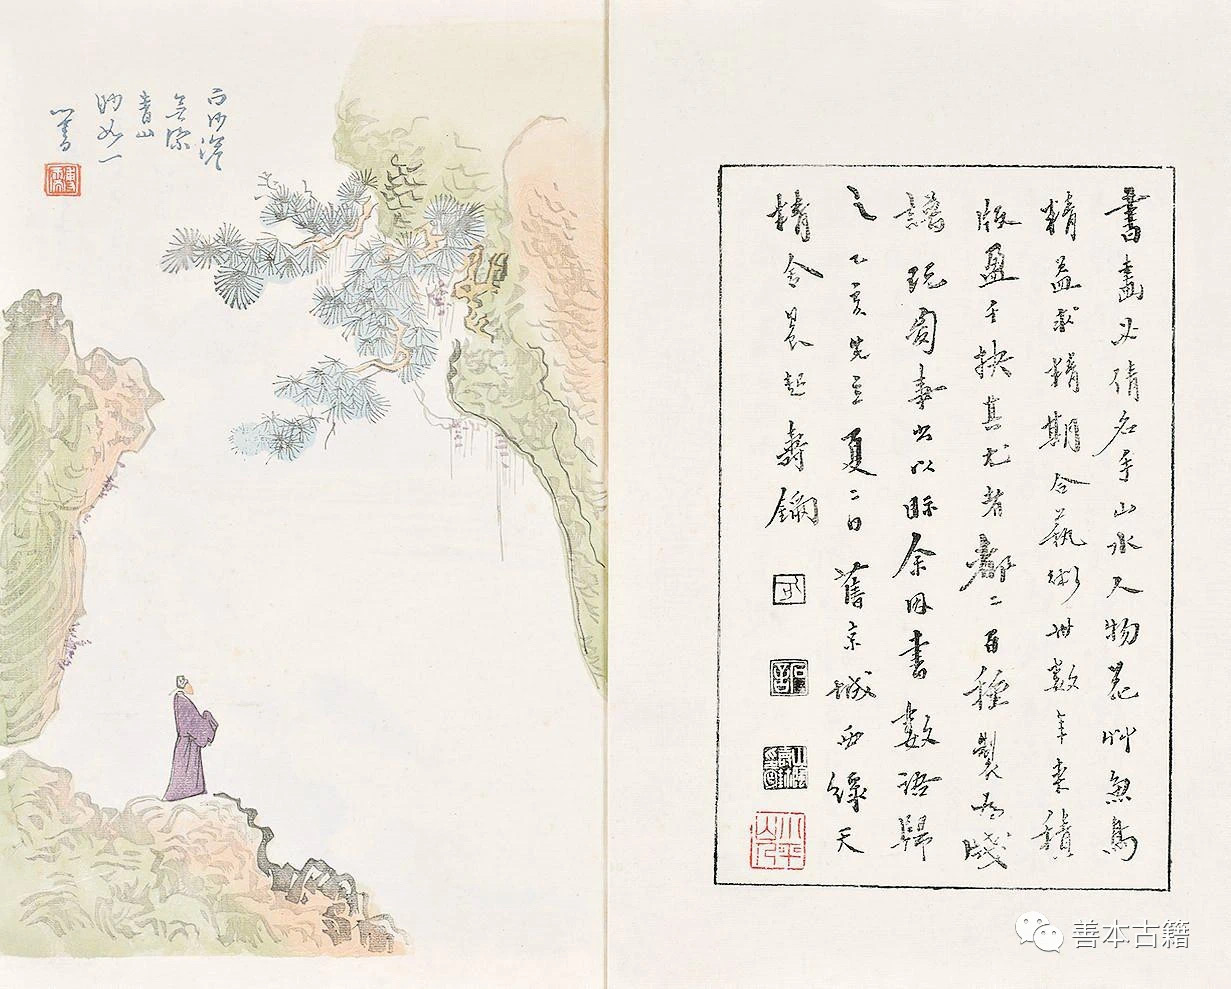 書畫必倩名手山水人物花艸魚鳥
精益求精期合藝術卅數年來積
版盈千抉其尤者都二百種製為牋
譜既匋事出以眎余因書數語歸
之乙亥先立夏二日舊京城西綠天
精舍晨起壽鑈
白沙澹
無際
青山
眇如一
心畬
善本古籍